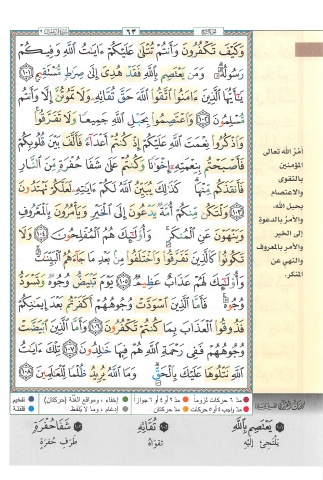 سُورَةُ آلِ عِمْرَانَ ٣
٦٣
الجزء الرابع
وَكَيْفَ تَكْفُرُونَ وَأَنتُمْ تُتْلَىٰ عَلَيْكُمْ ءَايَٰتُ ٱللَّهِ وَفِيكُمْ
رَسُولُهُۥ ۗ وَمَن يَعْتَصِم بِٱللَّهِ فَقَدْ هُدِىَ إِلَىٰ صِرَٰطٍ مُّسْتَقِيمٍ ١٠١
يَٰٓأَيُّهَا ٱلَّذِينَ ءَامَنُوا۟ ٱتَّقُوا۟ ٱللَّهَ حَقَّ تُقَاتِهِۦ وَلَا تَمُوتُنَّ إِلَّا وَأَنتُم
مُّسْلِمُونَ ١٠٢ وَٱعْتَصِمُوا۟ بِحَبْلِ ٱللَّهِ جَمِيعًا وَلَا تَفَرَّقُوا۟ ۚ
وَٱذْكُرُوا۟ نِعْمَتَ ٱللَّهِ عَلَيْكُمْ إِذْ كُنتُمْ أَعْدَآءً فَأَلَّفَ بَيْنَ قُلُوبِكُمْ
فَأَصْبَحْتُم بِنِعْمَتِهِۦٓ إِخْوَٰنًا وَكُنتُمْ عَلَىٰ شَفَا حُفْرَةٍ مِّنَ ٱلنَّارِ
فَأَنقَذَكُم مِّنْهَا ۗ كَذَٰلِكَ يُبَيِّنُ ٱللَّهُ لَكُمْ ءَايَٰتِهِۦ لَعَلَّكُمْ تَهْتَدُونَ
١٠٣ وَلْتَكُن مِّنكُمْ أُمَّةٌ يَدْعُونَ إِلَى ٱلْخَيْرِ وَيَأْمُرُونَ بِٱلْمَعْرُوفِ
وَيَنْهَوْنَ عَنِ ٱلْمُنكَرِ ۚ وَأُو۟لَٰٓئِكَ هُمُ ٱلْمُفْلِحُونَ ١٠٤ وَلَا
تَكُونُوا۟ كَٱلَّذِينَ تَفَرَّقُوا۟ وَٱخْتَلَفُوا۟ مِنۢ بَعْدِ مَا جَآءَهُمُ ٱلْبَيِّنَٰتُ ۚ
وَأُو۟لَٰٓئِكَ لَهُمْ عَذَابٌ عَظِيمٌ ١٠٥ يَوْمَ تَبْيَضُّ وُجُوهٌ وَتَسْوَدُّ
وُجُوهٌ ۚ فَأَمَّا ٱلَّذِينَ ٱسْوَدَّتْ وُجُوهُهُمْ أَكَفَرْتُم بَعْدَ إِيمَٰنِكُمْ
فَذُوقُوا۟ ٱلْعَذَابَ بِمَا كُنتُمْ تَكْفُرُونَ ١٠٦ وَأَمَّا ٱلَّذِينَ ٱبْيَضَّتْ
وُجُوهُهُمْ فَفِى رَحْمَةِ ٱللَّهِ هُمْ فِيهَا خَٰلِدُونَ ١٠٧ تِلْكَ ءَايَٰتُ
ٱللَّهِ نَتْلُوهَا عَلَيْكَ بِٱلْحَقِّ ۗ وَمَا ٱللَّهُ يُرِيدُ ظُلْمًا لِّلْعَٰلَمِينَ ١٠٨
أمر الله تعالى
المؤمنين
بالتقوى
والاعتصام
بحبل الله،
والأمر بالدعوة
إلى الخير
والأمر بالمعروف
والنهي عن
المنكر.
مد ٦ حركات لزوماً مد ٢ أو ٤ أو ٦ جوازاً إخفاء، ومواقع الغنة (حركتان) تفخيم
مد واجب ٤ أو ٥ حركات مد حركتان إدغام، وما لا يلفظ قلقلة
يَعْتَصِم بِاللهِ
يَلْتَجِئْ إِلَيْهِ
تُقَاتِهِ
تَقْوَاهُ
شَفَا حُفْرَةٍ
طَرَفِ حُفْرَةٍ